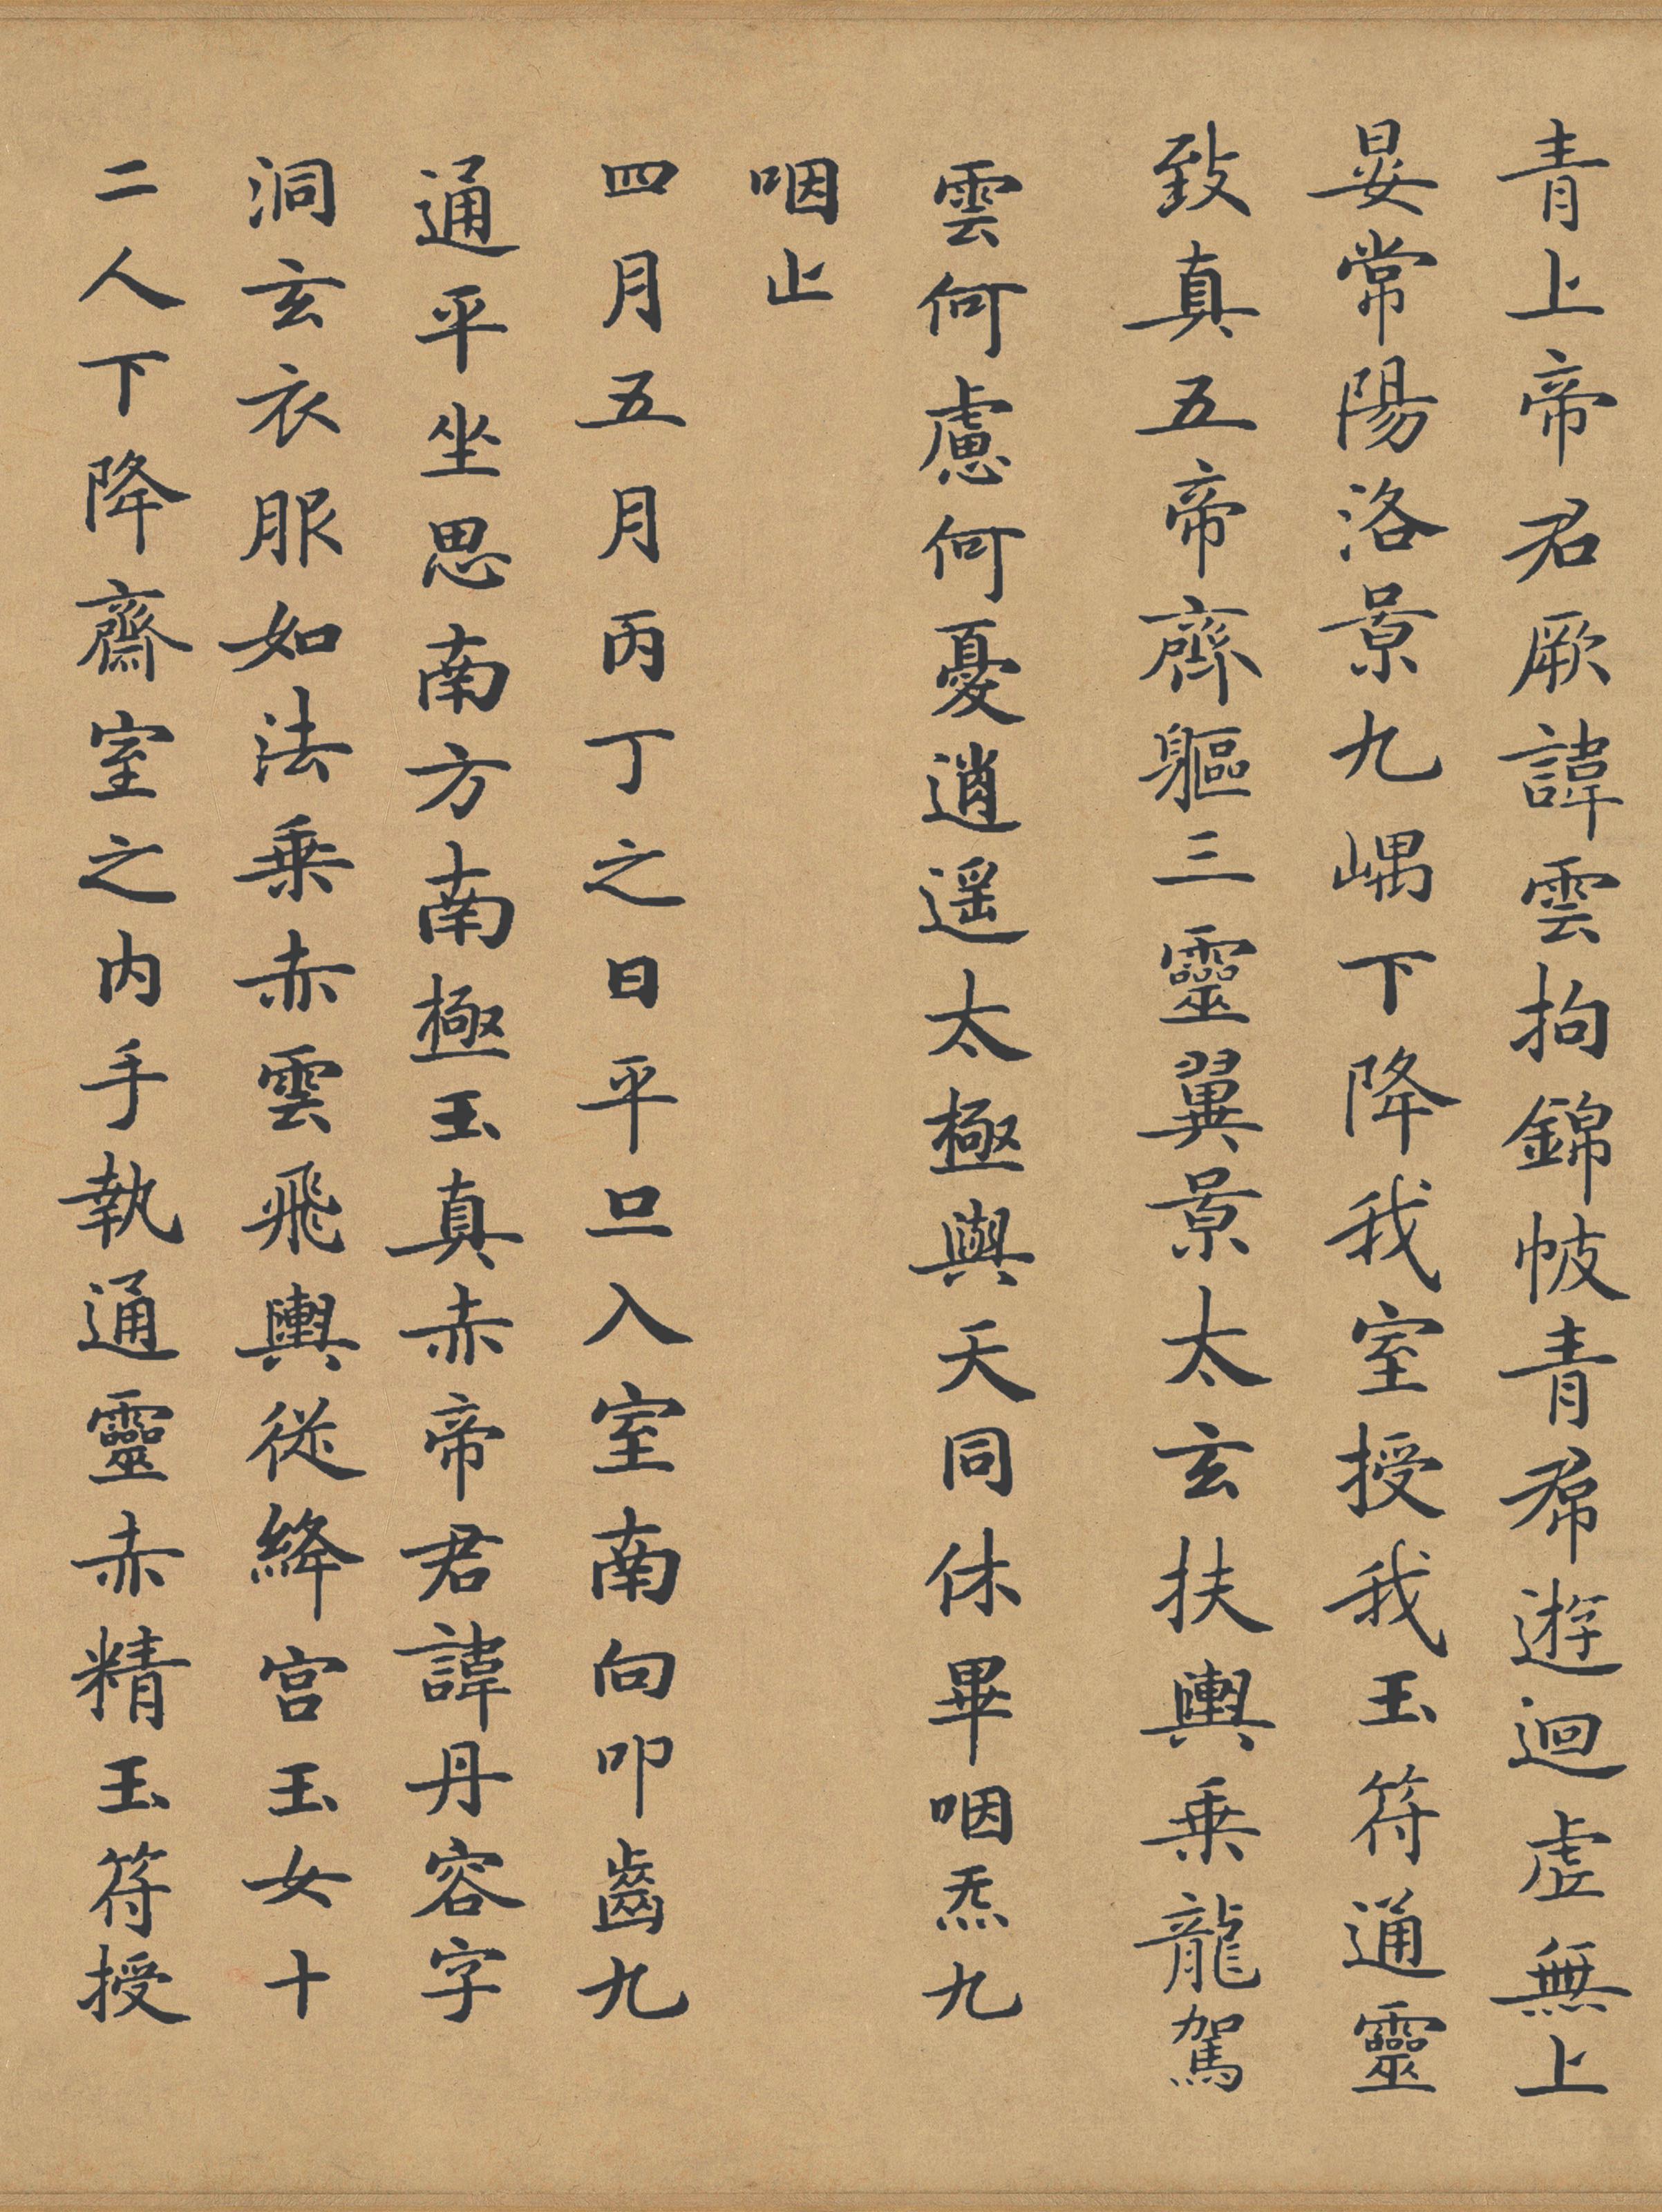 青上帝君厥諱雲拘錦帔青帬遊迴虛無上
晏常陽洛景九嵎下降我室授我玉符通靈
致真五帝齊軀三靈翼景太玄扶輿乘龍駕
雲何慮何憂逍遥太極與天同休畢咽炁九
咽止
四月五月丙丁之日平旦入室南向叩齒九
通平坐思南方南極玉真赤帝君諱丹容字
洞玄衣服如法乘赤雲飛輿從絳宫玉女十
二人下降齋室之内手執通靈赤精玉符授